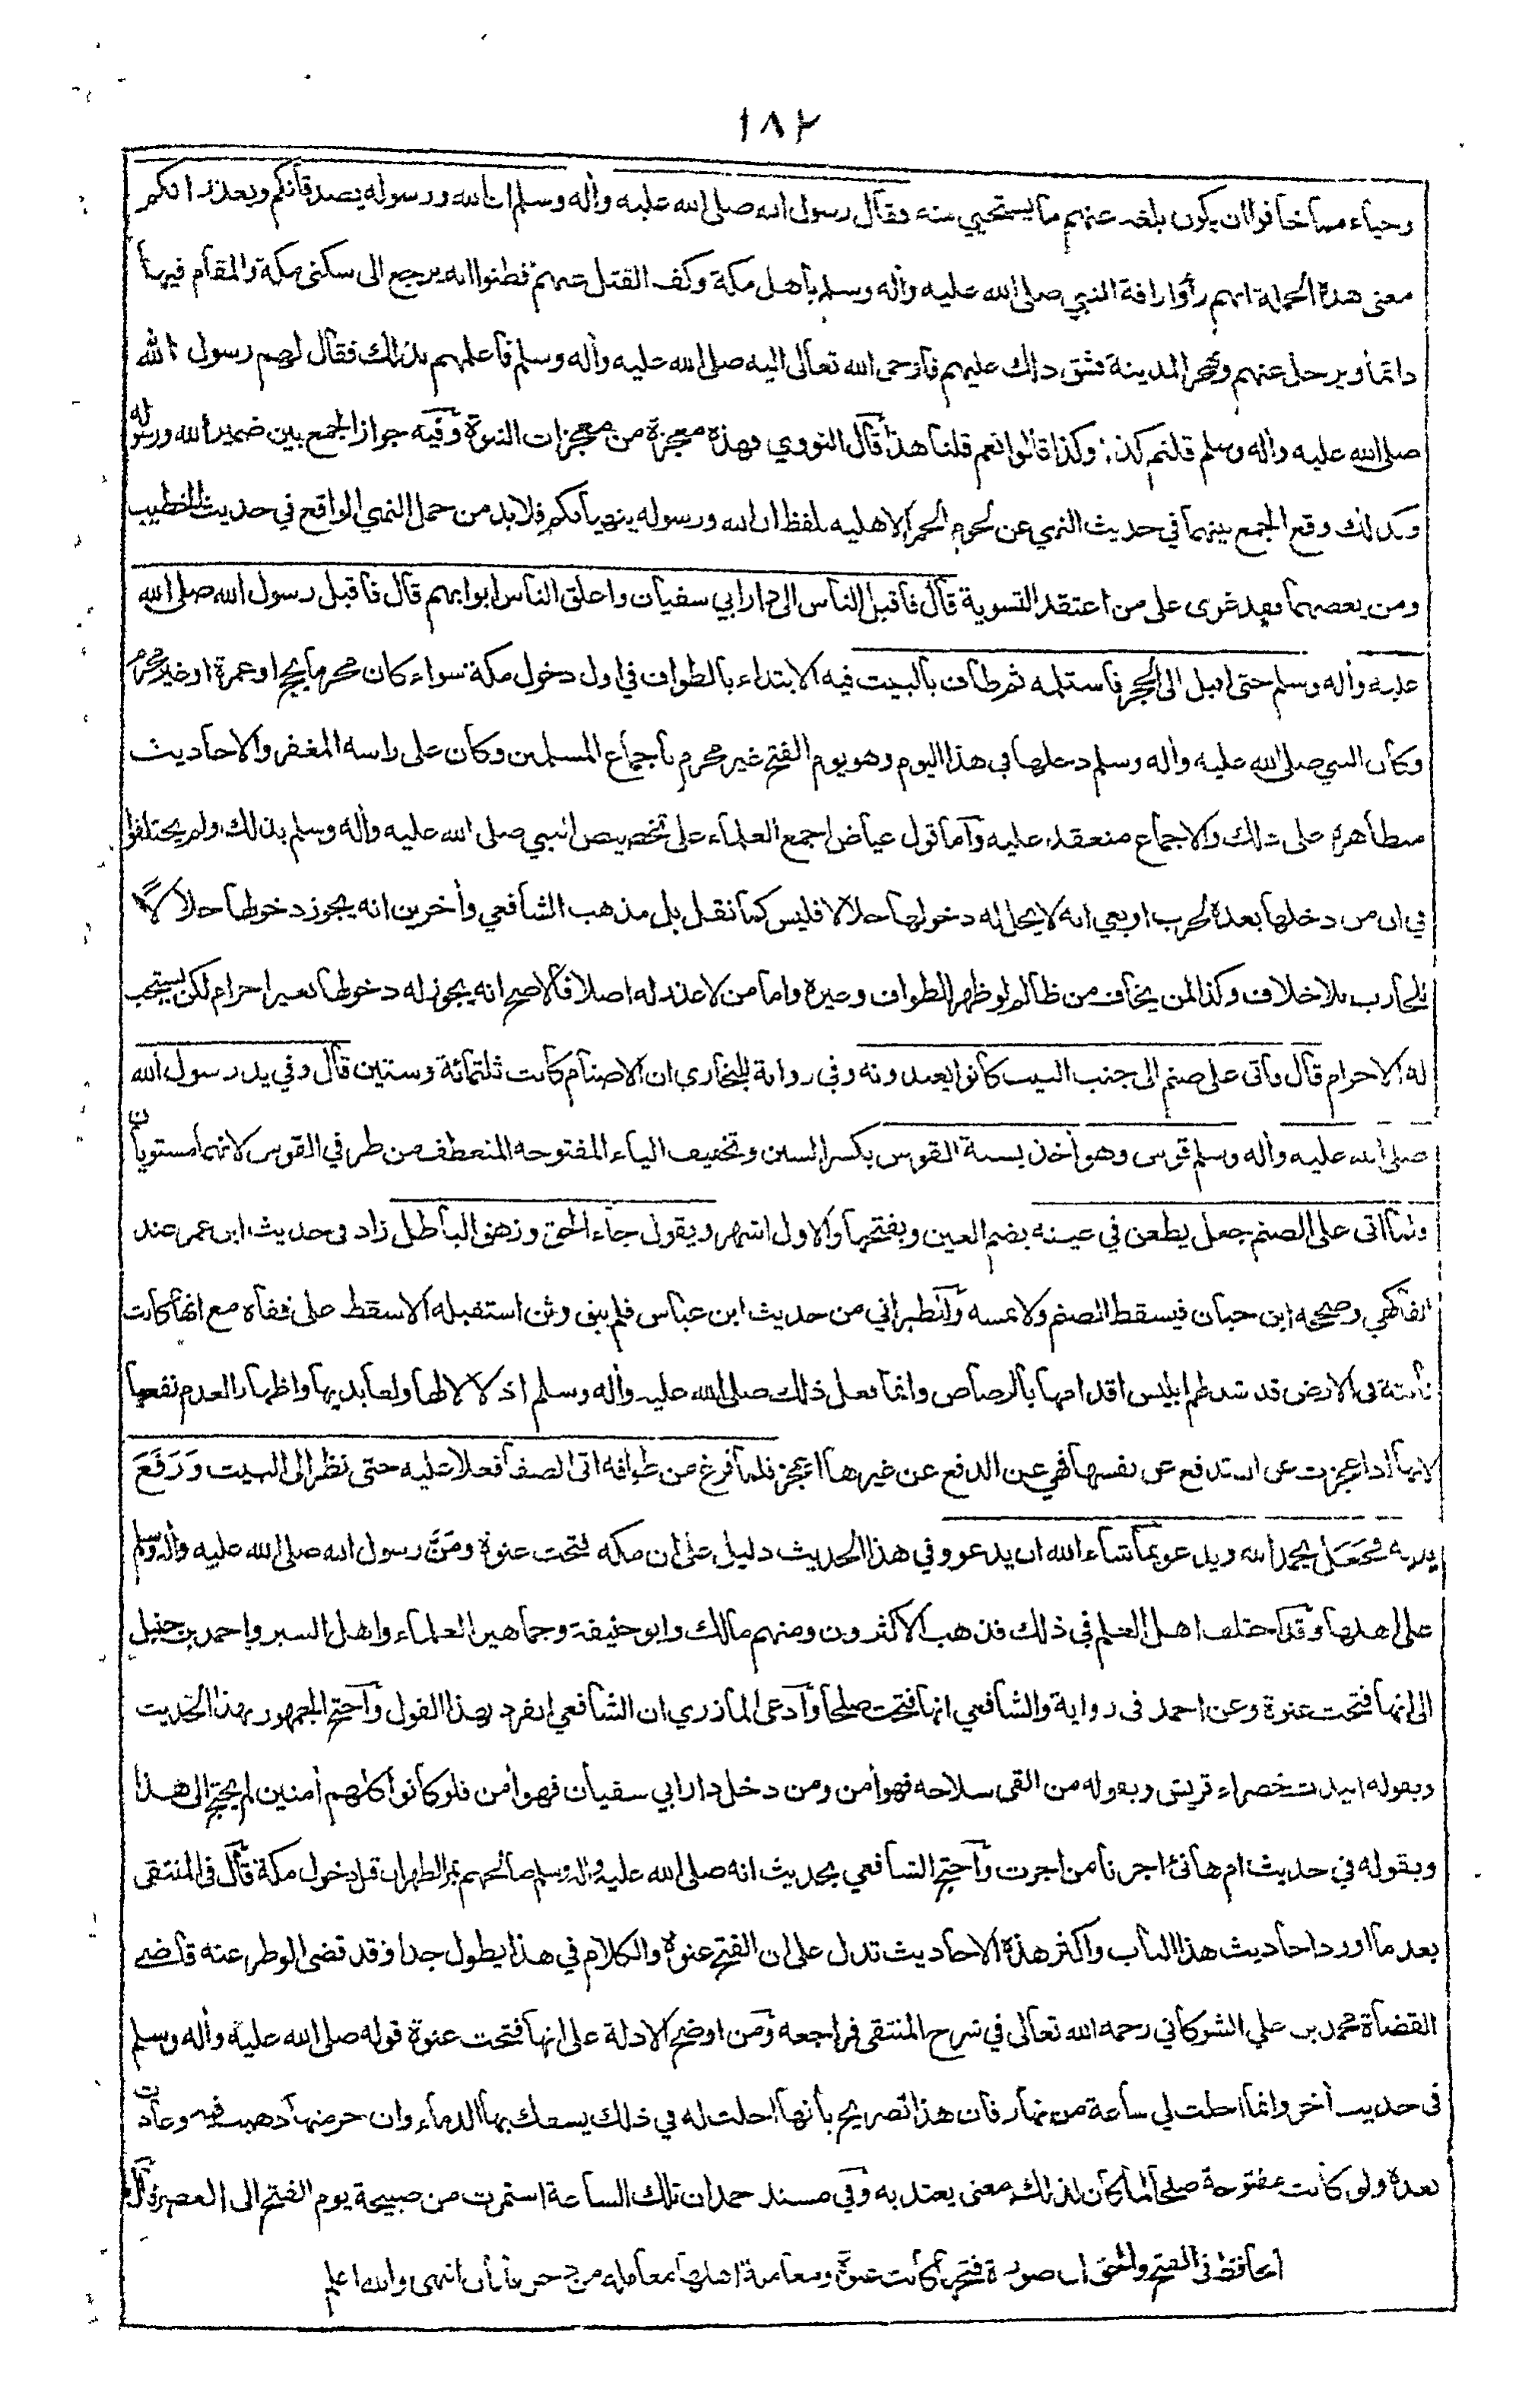 ١٨٢
وحياء مما خافوا ان يكون بلغه عنهم مما يستحيي منه فقال رسول الله صلى الله عليه وأله وسلم ان الله ورسوله يصدقانكم ويعذرانكم
معنى هذه الجملة انهم رأوا رافة النبي صلى الله عليه وأله وسلم بأهل مكة وكف القتل عنهم فظنوا انه يرجع الى سكنى مكة والمقام فيها
دائما ويرحل عنهم ويهجر المدينة فشق ذلك عليهم فاوحى الله تعالى اليه صلى الله عليه وأله وسلم فاعلمهم بذلك فقال لهم رسول الله
صلى الله عليه وأله وسلم قلتم كذا وكذا قالوا نعم قلنا هذا قال النووي فهذه معجزة من معجزات النبوة وفيه جواز الجمع بين ضمير الله ورسوله
وكذلك وقع الجمع بينهما في حديث النهي عن لحوم الحمر الاهليه بلفظ ان الله ورسوله ينهيانكم فلا بد من حمل النهي الواقع في حديث الخطيب
ومن يعصهما فقد غوى على من اعتقد التسوية قال فاقبل الناس الى دار ابي سفيان واغلق الناس ابوابهم قال فاقبل رسول الله صلى الله
عليه وأله وسلم حتى اقبل الى الحجر فاستلمه ثم طاف بالبيت فيه الابتداء بالطواف في اول دخول مكة سواء كان محرما بحج او عمرة او غير محرم
وكان النبي صلى الله عليه وأله وسلم دخلها في هذا اليوم وهو يوم الفتح غير محرم باجماع المسلمين وكان على راسه المغفر والاحاديث
متظاهرة على ذلك والاجماع منعقد عليه واما قول عياض اجمع العلماء على تخصيص النبي صلى الله عليه وأله وسلم بذلك ولم يختلفوا
في ان من دخلها بعده لحرب او بغي انه لا يحل له دخولها حلالا فليس كما نقل بل مذهب الشافعي وأخرين انه يجوز دخولها حلالا
للمحارب بلا خلاف وكذا لمن يخاف من ظالم لو ظهر للطواف وغيره واما من لا عذر له اصلا فالاصح انه يجوز له دخولها بغير احرام لكن يستحب
له الاحرام قال فاتى على صنم الى جنب البيت كانوا يعبدونه وفي رواية للبخاري ان الاصنام كانت ثلثمائة وستين قال وفي يد رسول الله
صلى الله عليه وأله وسلم قوس وهو أخذ بسية القوس بكسر السين وتخفيف الياء المفتوحه المنعطف من طرفي القوس لانهما مستويان
فلما اتى على الصنم جعل يطعن في عينه بضم العين وبفتحها والاول اشهر ويقول جاء الحق وزهق الباطل زاد في حديث ابن عمر عند
الفاكهي وصححه ابن حبان فيسقط الصنم ولا يمسه وللطبراني من حديث ابن عباس فلم يبق وثن استقبله الا سقط على قفاه مع انها كانت
ثابتة في الارض قد شد لهم ابليس اقدامها بالرصاص وانما فعل ذلك صلى الله عليه وأله وسلم اذلالا لها ولعابديها واظهارا لعدم نفعها
لانها اذا عجزت عن ان تدفع عن نفسها فهي عن الدفع عن غيرها اعجز فلما فرغ من طوافه اتى الصفا فعلا عليه حتى نظر الى البيت وَرَفَعَ
يديه فَجَعَل يحمد الله ويدعو بما شاء الله ان يدعو وفي هذا الحديث دليل على ان مكه فتحت عنوة ومَنَّ رسول الله صلى الله عليه وأله وسلم
على اهلها وقد اختلف اهل العلم في ذلك فذهب الاكثرون ومنهم مالك وابو حنيفة وجماهير العلماء واهل السير واحمد بن حنبل
الى انها فتحت عنوة وعن احمد في رواية والشافعي انها فتحت صلحا وادعى المازري ان الشافعي انفرد بهذا القول واحتج الجمهور بهذا الحديث
وبقوله ابيدت خضراء قريش وبقوله من القى سلاحه فهو أمن ومن دخل دار ابي سفيان فهو أمن فلو كانوا كلهم أمنين لم يحتج الى هذا
وبقوله في حديث ام هانئ اجرنا من اجرت واحتج الشافعي بحديث انه صلى الله عليه وأله وسلم صالحهم بمر الظهران قبل دخول مكة قال في المنتقى
بعد ما اورد احاديث هذا الباب واكثر هذه الاحاديث تدل على ان الفتح عنوة والكلام في هذا يطول جدا وقد قضى الوطر عنه قاضي
القضاة محمد بن علي الشوكاني رحمه الله تعالى في شرح المنتقى فراجعه ومن اوضح الادلة على انها فتحت عنوة قوله صلى الله عليه وأله وسلم
في حديث أخر وانما احلت لي ساعة من نهار فان هذا تصريح بأنها احلت له في ذلك يسفك بها الدماء وان حرمتها ذهبت فيه وعادت
بعده ولو كانت مفتوحة صلحا لما كان لذلك معنى يعتد به وفي مسند احمد ان تلك الساعة استمرت من صبيحة يوم الفتح الى العصر وقال
الحافظ في الفتح والحق ان صورة فتحها كانت عنوة ومعاملة اهلها معاملة من دخل بأمان انتهى والله اعلم